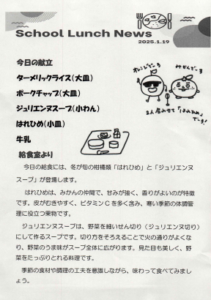 School Lunch News
2026.1.19
今日の献立
ターメリックライス(大皿)
ポークチャップ(大皿)
ジュリエンヌスープ(小わん)
はれひめ(小皿)
牛乳
給食室より
今日の給食には、冬が旬の柑橘類「はれひめ」と「ジュリエンヌ
スープ」が登場します。
はれひめは、みかんの仲間で、甘みが強く、香りがよいのが特徴
です。皮がむきやすく、ビタミンCを多く含み、寒い季節の体調管
理に役立つ果物です。
ジュリエンヌスープは、野菜を細いせん切り(ジュリエンヌ切り)
にして作るスープです。切り方をそろえることで火の通りがよくな
り、野菜のうま味がスープ全体に広がります。見た目も美しく、野
菜をたっぷりとれる料理です。
季節の食材や調理の工夫を意識しながら、味わって食べてみまし
ょう。